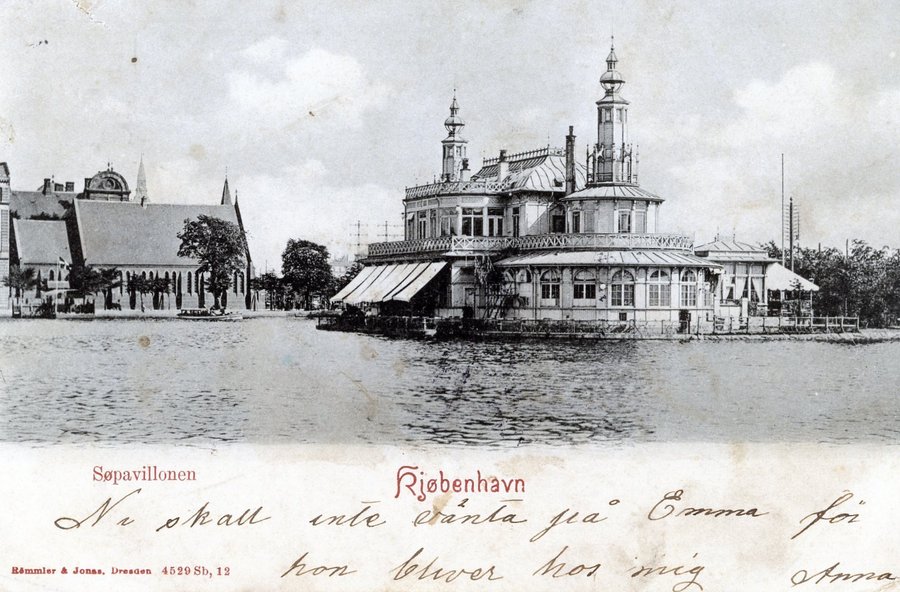 Søpavillonen
Kjøbenhavn
Ni skall inte vänta på Emma för
Römmler & Jonas, Dresden 4529 Sb, 12
hon bliver hos mig Anna